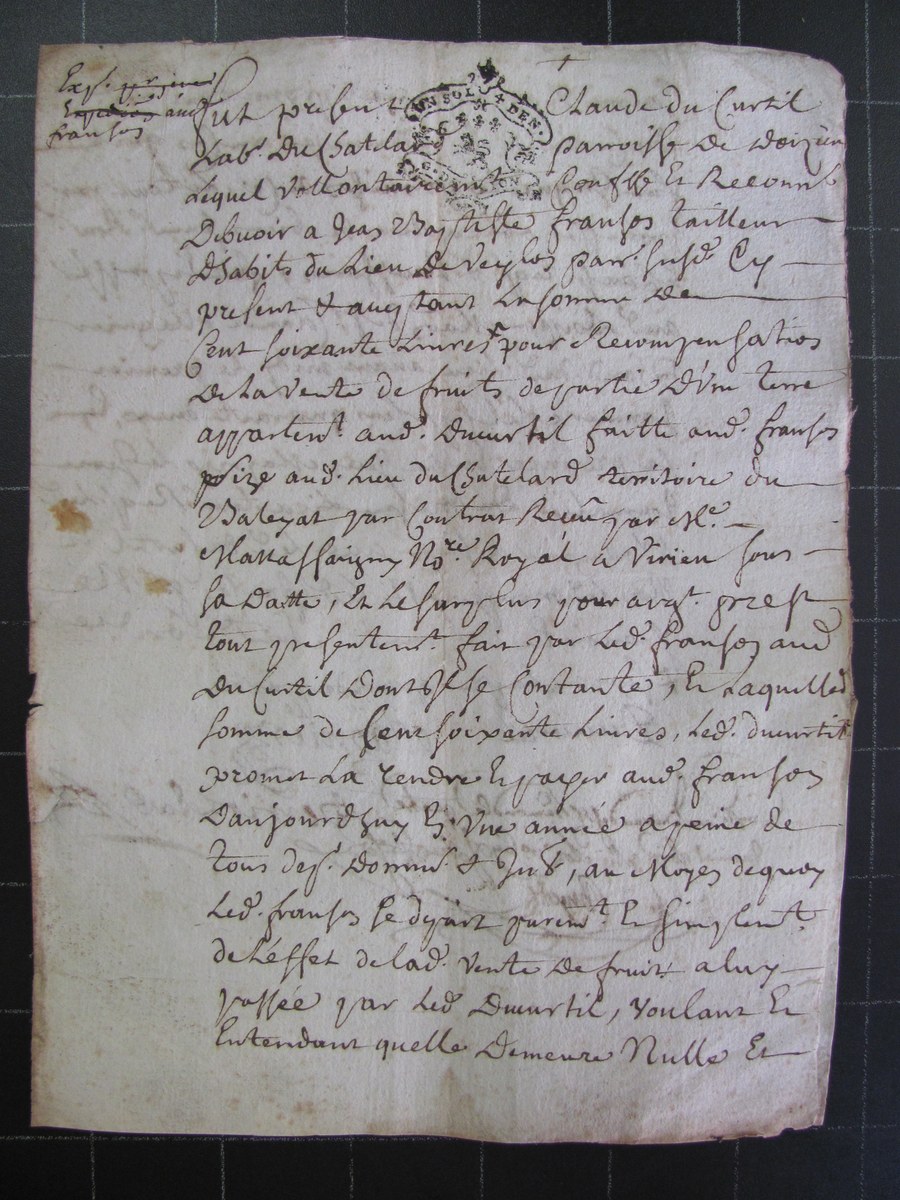 Exp.
Expedié aud.
franson
UN SOL 4 DEN.
Fut present Claude du Curtil
Lab. Du Chatelard parroisse de
Lequel vollontairemt Confesse Et Reconnu
Debvoir a Jean Baptiste franson tailleur
D'habits du Lieu de Veylos parr. susd. Cy
present & aceptant La somme de
Cent soixante Livres pour Recompensation
De La vente de fruits de partie D'une terre
appartent. aud. ducurtil faitte aud. franson
size aud. Lieu du Chatelard territoire du
par Contrat Receu par Me.
Nore. Royal a Virieu sous
sa Datte, Et Le surplus pour
tout presentemt. fait par Led. franson aud
du Curtil Dont Il se Contante, Et Laquelle
somme de Cent soixante Livres, Led. ducurtil
promet La rendre Et payer aud. franson
Daujourdhuy En Une année a peine de
tous desp. Domm. & Int, au Moyen dequoy
Led. franson se depart puremt. Et simplemt.
de L'effet de lad. vente de fruit a luy
passée par Led Ducurtil, voulant Et
Entendant quelle Demeure Nulle Et